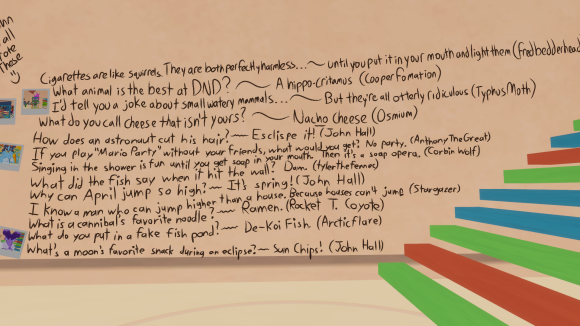 Cigarettes are like squirrels. They are both perfectly harmless...~ until you put it in your mouth and light them (Fredbedderhead
What animal is the best at DND? ~ A hippo-critamus (Cooper Fomation)
I'd tell you a joke about small watery mammals...~ But they're all otterly ridiculous (Typhus Moth)
What do you call cheese that isn't yours? ~ Nacho Cheese (Osmium)
How does an astronaut cut his hair? ~ Esclipse it! (John Hall)
If you play "Mario Party" without your friends, what would you get? No party. (AnthonyTheGreat)
Singing in the shower is fun until you get soap in your mouth. Then it's a soap opera. (Corbin Wolf)
What did the fish say when it hit the wall? Dam. (tylerthefennec)
Why can April jump so high? ~ It's spring! (John Hall)
I know a man who can jump higher than a house. Because houses can't jump (Stargazer)
What is a cannibal's favorite noodle? ~ Ramen. (Rocket T. Coyote)
What do you put in a fake fish pond? ~ De-Koi Fish (Arcticflare)
What's a moon's favorite snack during an eclipse? ~ Sun Chips! (John Hall)